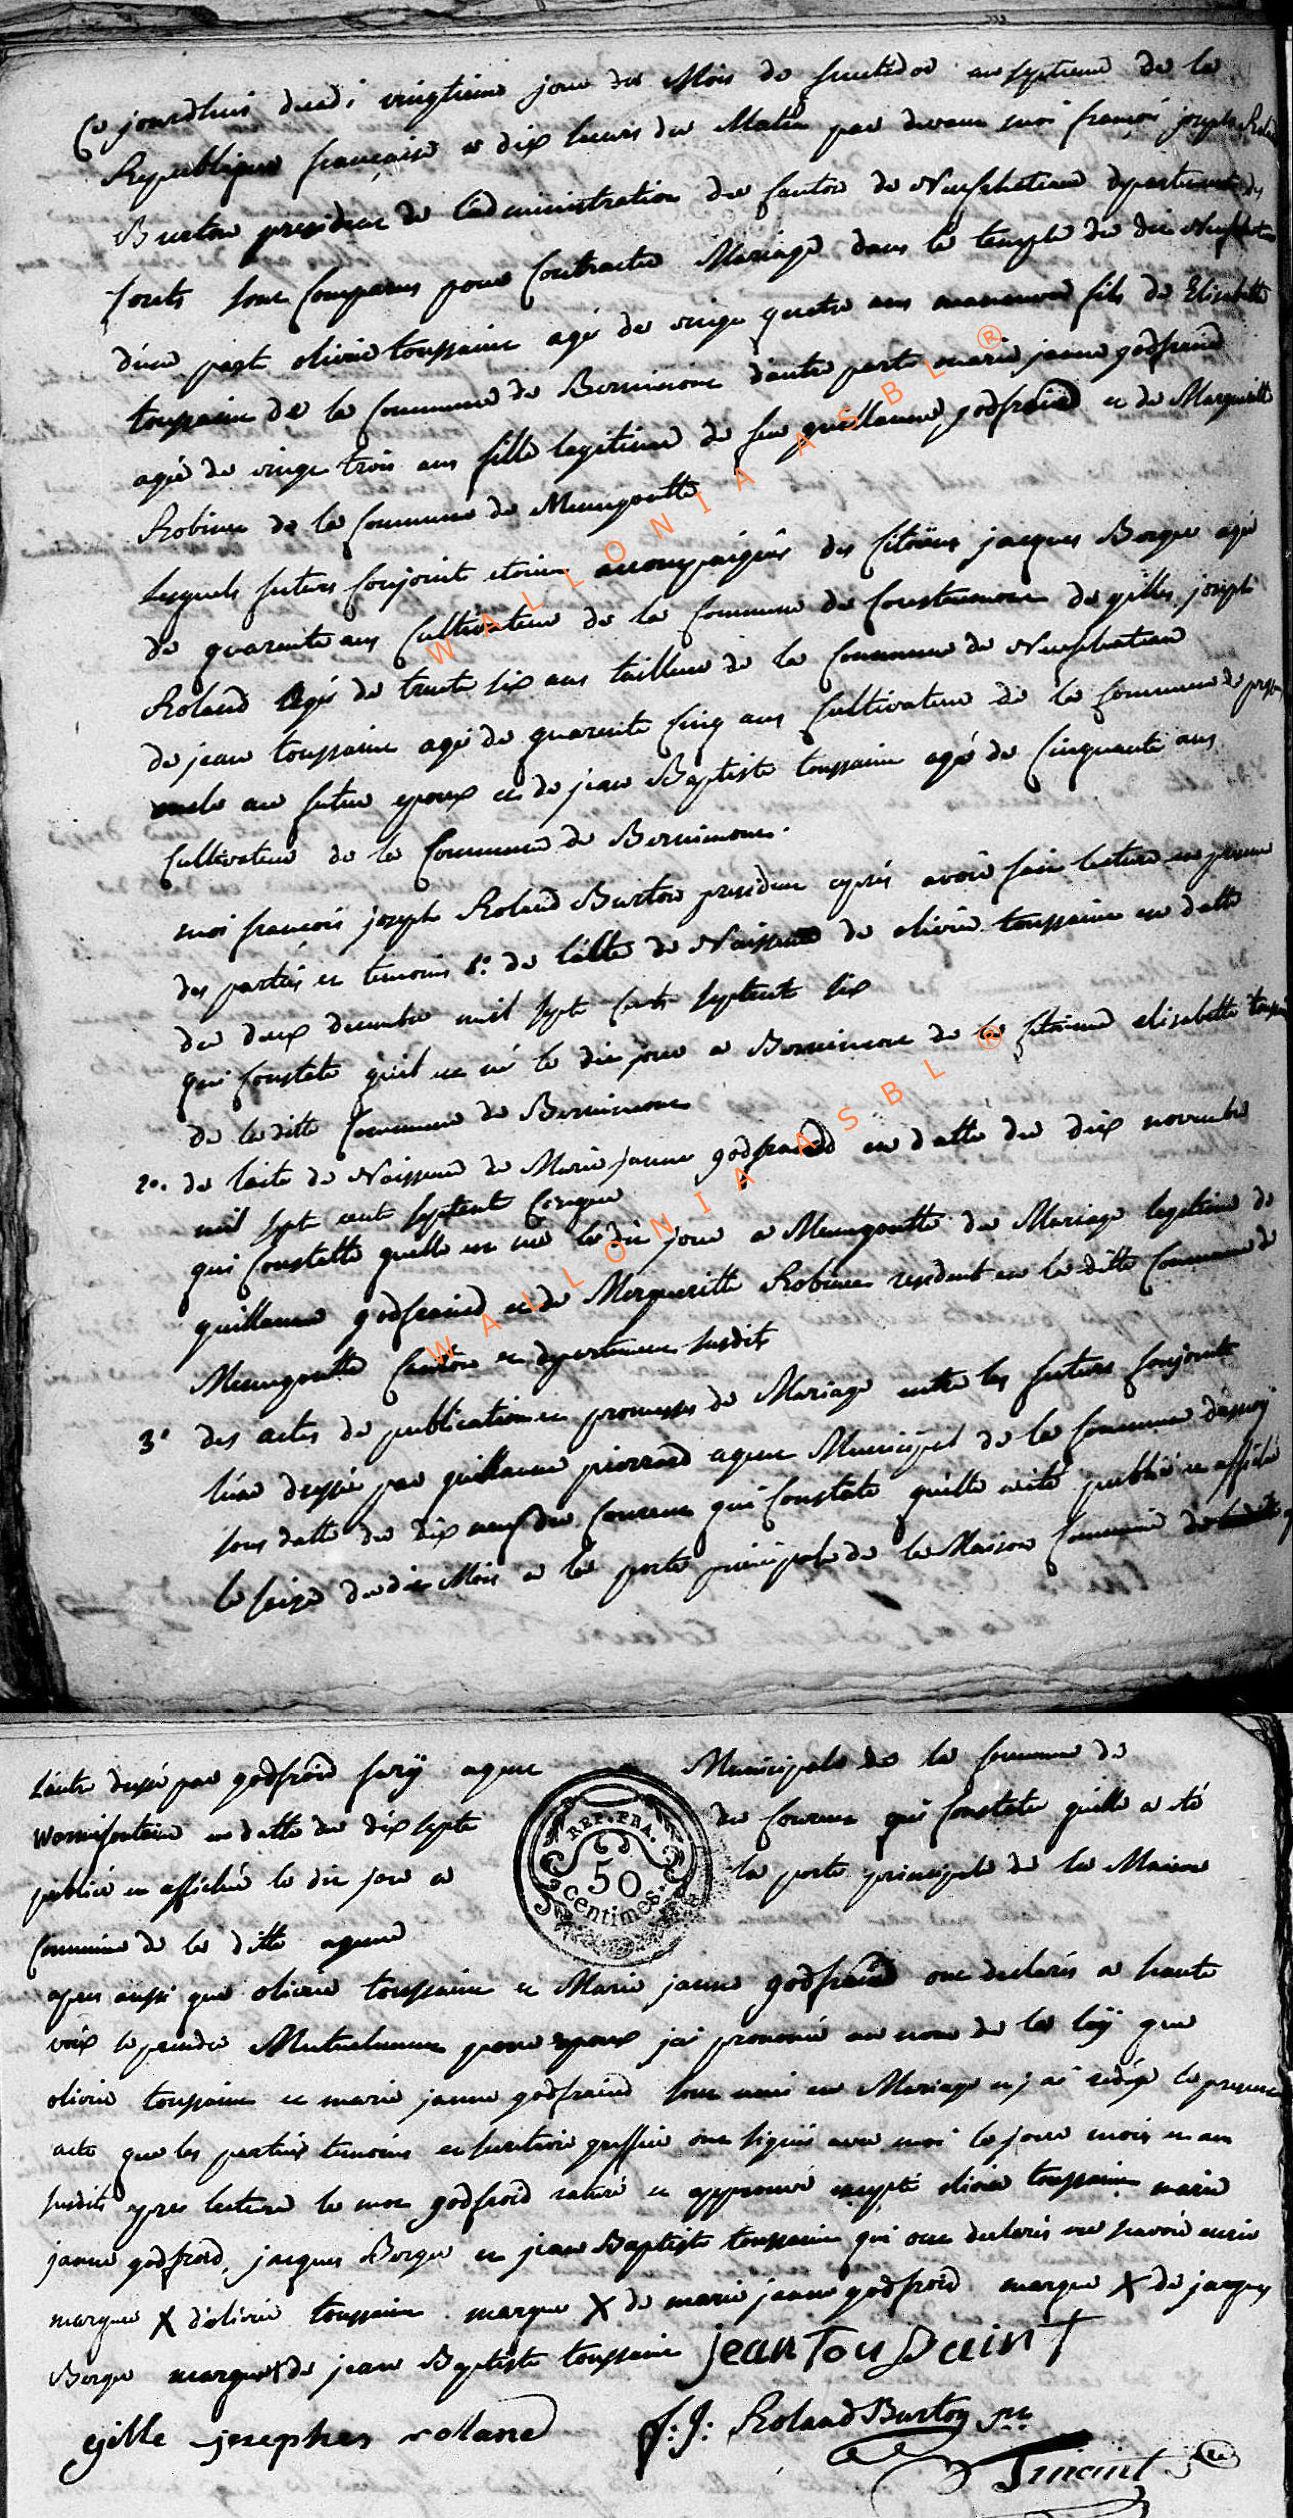 Ce jourdhui decadi vingtieme jour du Mois de fructidor an septieme de la
Republique francaise a dix heures du Matin par devant moi françois joseph Roland
Burton president de Ladministration du Canton de Neufchateau departement des
forets sont Comparus pour Contracter Mariage dans le temple du dit Neufchateau
d'une part olivier toussaint agé de vingt quatre ans manoeuvre fils de Elisabette
toussaint de la Commune de Bernimont d'autre part marie jeanne godfraind
agée de vingt trois ans fille legitime de feu guillaume godfraind et de Margueritte
Robinet de la Commune de Menugoutte
Lesquels futurs Conjoints etoient accompaignés des Citoïens jacques Borque agé
de quarante ans Cultivateur de la Commune de Coustumont de gilles joseph
Roland Agé de trente six ans tailleur de la Commune de Neufchateau
de jean toussaint agé de quarante Cinq ans Cultivateur de la Commune de
oncle au futur epoux et de jean Baptiste toussaint agé de Cinquante ans
Cultivateur de la Commune de Bernimont.
moi francois joseph Roland Burton president après avoir fait lecture en presence
des parties et temoins 1°. de l'acte de Naissance de olivier toussaint en datte
du deux decembre mil sept Cent septente six
qui Constate qu'il est né le dit jour a Bernimont de la Citoienne elisabette toussaint
de la ditte Commune de Bernimont
2°. de l'acte de Naissance de Marie jeanne godfraind en datte du dix novembre
mil sept cent septent Cinque
qui Constatte quelle est née le dit jour a Menugoutte du Mariage legitime de
guillaume godfraind et de Margueritte Robinet residant en la ditte Commune de
Menugoutte Canton et departement susdits
3° des actes de publication et promesses de Mariage entre les futurs Conjoints
l'une dressée par guillaume pierrard agent Municipal de la Commune d'assenoy
sous datte du dix neuf du Courant qui Constate quelle a été publiée et affichée
le seize du dit Mois a la porte principale de la Maison Commune
L'autre dressé par godfroid fery agent Municipale de la Commune de
Wornifontaine en datte du dix sept du Courant qui Constate quelle a été
publié et affichée le dit jour a la porte principale de la Maison
Commune de la ditte agence
REP. FRA.
50
centimes.
apres aussi que olivier toussaint et Marie jeanne godfraind ont declarés a haute
voix se prendre Mutuellement pour epoux jai prononcé au nom de la loÿ que
olivier toussaint et marie jeanne godfraind sont unis en Mariage et j'ai redigé le present
acte que les parties temoins et secretaire greffier ont signés avec moi le jour mois et an
susdits apres lecture le mot godfroid raturé et approuvé excepté olivier toussaint marie
jeanne godfroid, jacques Borque et jean Baptiste toussaint qui ont declarés ne scavoir ecrire
marque X d'olivier toussaint marque X de marie jeanne godfroid marque X de jacques
Borque marque X de jean Baptiste toussaint jean Toussaint
gille josephes rolland f: J: Roland Burton
WALLONIA ASBL ®
WALLONIA ASBL ®